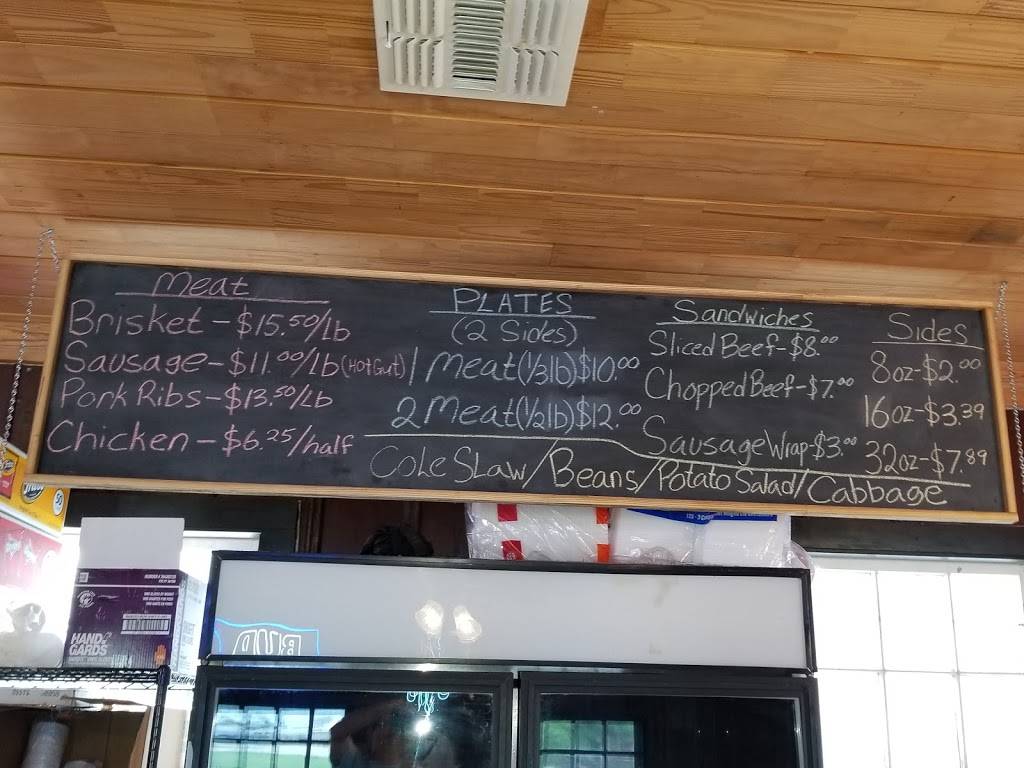 Meat
Brisket - $15.50/Lb
Sausage - $11.00/Lb (HotGut)
Pork Ribs - $13.50/Lb
Chicken - $6.25/half
PLATES
(2 Sides)
1 Meat (1/3lb) $10.00
2 Meat (1/2lb) $12.00
Sandwiches
Sliced Beef - $8.00
Chopped Beef - $7.00
Sausage Wrap - $3.00
Sides
8oz - $2.00
16oz - $3.39
32oz - $7.89
Cole Slaw/Beans/Potato Salad/Cabbage
HAND
GARDS
BUD